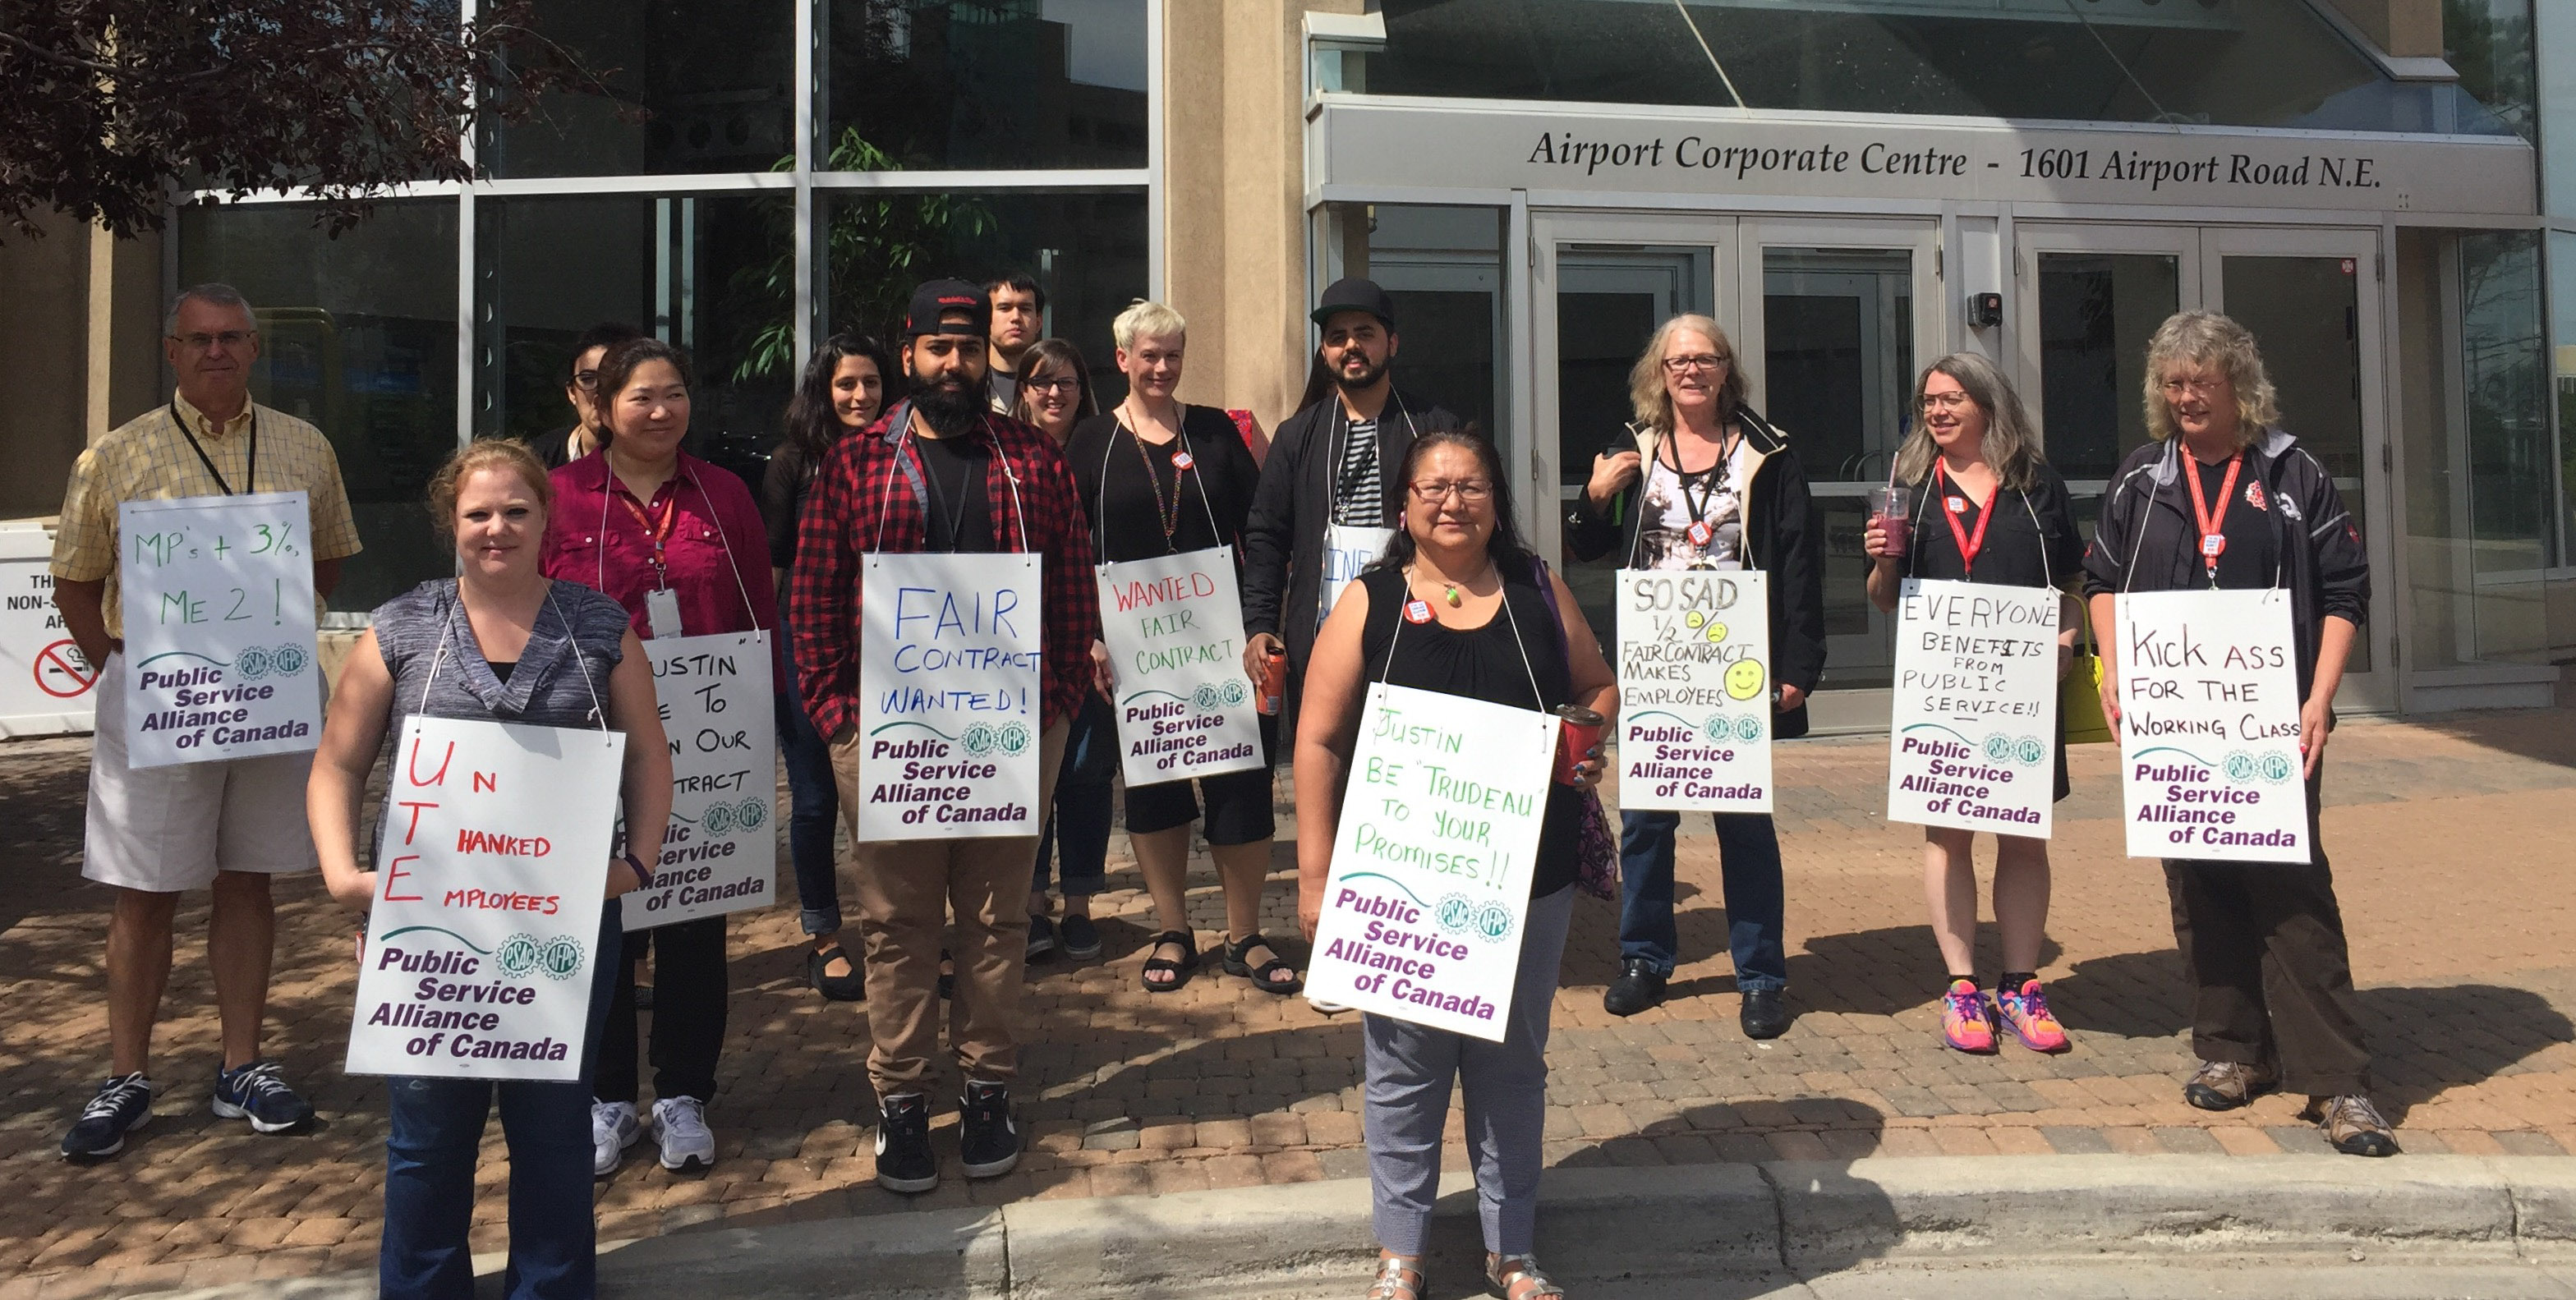 Airport Corporate Centre - 1601 Airport Road N.E.
MP's + 3%,
ME 2!
Public
Service
Alliance
of Canada
PSAC AFPC
UN
THANKED
EMPLOYEES
Public
Service
Alliance
of Canada
PSAC AFPC
To
OUR
Service
of Canada
FAIR
CONTRACT
WANTED!
Public
Service
Alliance
of Canada
PSAC AFPC
WANTED
FAIR
CONTRACT
Public
Service
Alliance
of Canada
PSAC AFPC
"JUSTIN
BE "TRUDEAU"
TO YOUR
PROMISES!!
Public
Service
Alliance
of Canada
PSAC AFPC
SO SAD
1/2 %
FAIR CONTRACT
MAKES
EMPLOYEES
Public
Service
Alliance
of Canada
PSAC AFPC
EVERYONE
BENEFITS
FROM
PUBLIC
SERVICE!!
Public
Service
Alliance
of Canada
PSAC AFPC
KICK ASS
FOR THE
WORKING CLASS
Public
Service
Alliance
of Canada
PSAC AFPC